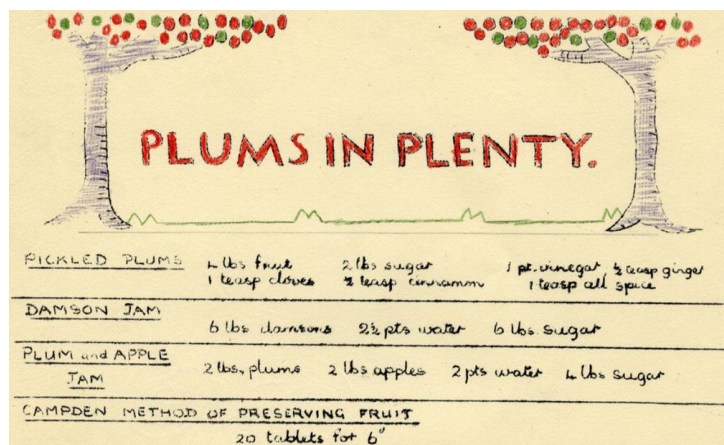 PLUMS IN PLENTY.
PICKLED PLUMS 4 lbs fruit 2 lbs sugar 1 pt. vinegar, ½ teasp ginger
1 teasp cloves ½ teasp cinnamon 1 teasp all spice
DAMSON JAM
6 lbs damsons 2½ pts water 6 lbs. sugar
PLUM and APPLE
JAM 2 lbs, plums 2 lbs apples 2 pts water 4 lbs sugar
CAMPDEN METHOD OF PRESERVING FRUIT
20 tablets for 6ᵈ